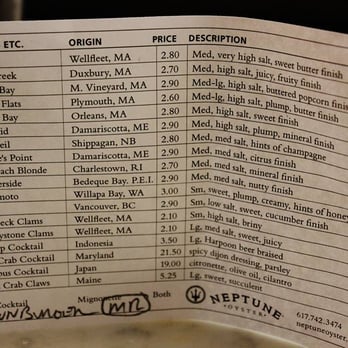 ETC. ORIGIN PRICE DESCRIPTION
Wellfleet, MA 2.80 Med, very high salt, sweet butter finish
reek Duxbury, MA 2.70 Med, high salt, juicy, fruity finish
Bay M. Vineyard, MA 2.90 Med-lg, high salt, buttered popcorn finish
Flats Plymouth, MA 2.60 Med-lg, high salt, plump, butter finish
Bay Orleans, MA 2.80 Med, high salt, sweet finish
id Damariscotta, ME 2.90 Med, high salt, plump, mineral finish
eil Shippagan, NB 2.80 Med, mid salt, hints of champagne
e's Point Damariscotta, ME 2.90 Med, mid salt, citrus finish
ach Blonde Charlestown, RI 2.70 Med, mid salt, mineral finish
erside Bedeque Bay, P.E.I. 2.90 Med, mid salt, nutty finish
moto Willapa Bay, WA 3.00 Sm, sweet, plump, creamy, hints of honey
Vancouver, BC 2.90 Sm, low salt, sweet, cucumber finish
eck Clams Wellfleet, MA 2.10 Sm, high salt, briny
ystone Clams Wellfleet, MA 2.10 Lg, med salt, sweet, juicy
Cocktail Indonesia 3.50 Lg, Harpoon beer braised
Crab Cocktail Maryland 21.50 spicy dijon dressing, parsley
ous Cocktail Japan 19.00 citronette, olive oil, cilantro
Crab Claws Maine 5.25 Lg, sweet, succulent
Cocktail Mignonette Both
NEPTUNE
OYSTER
617.742.3474
neptuneoyster.